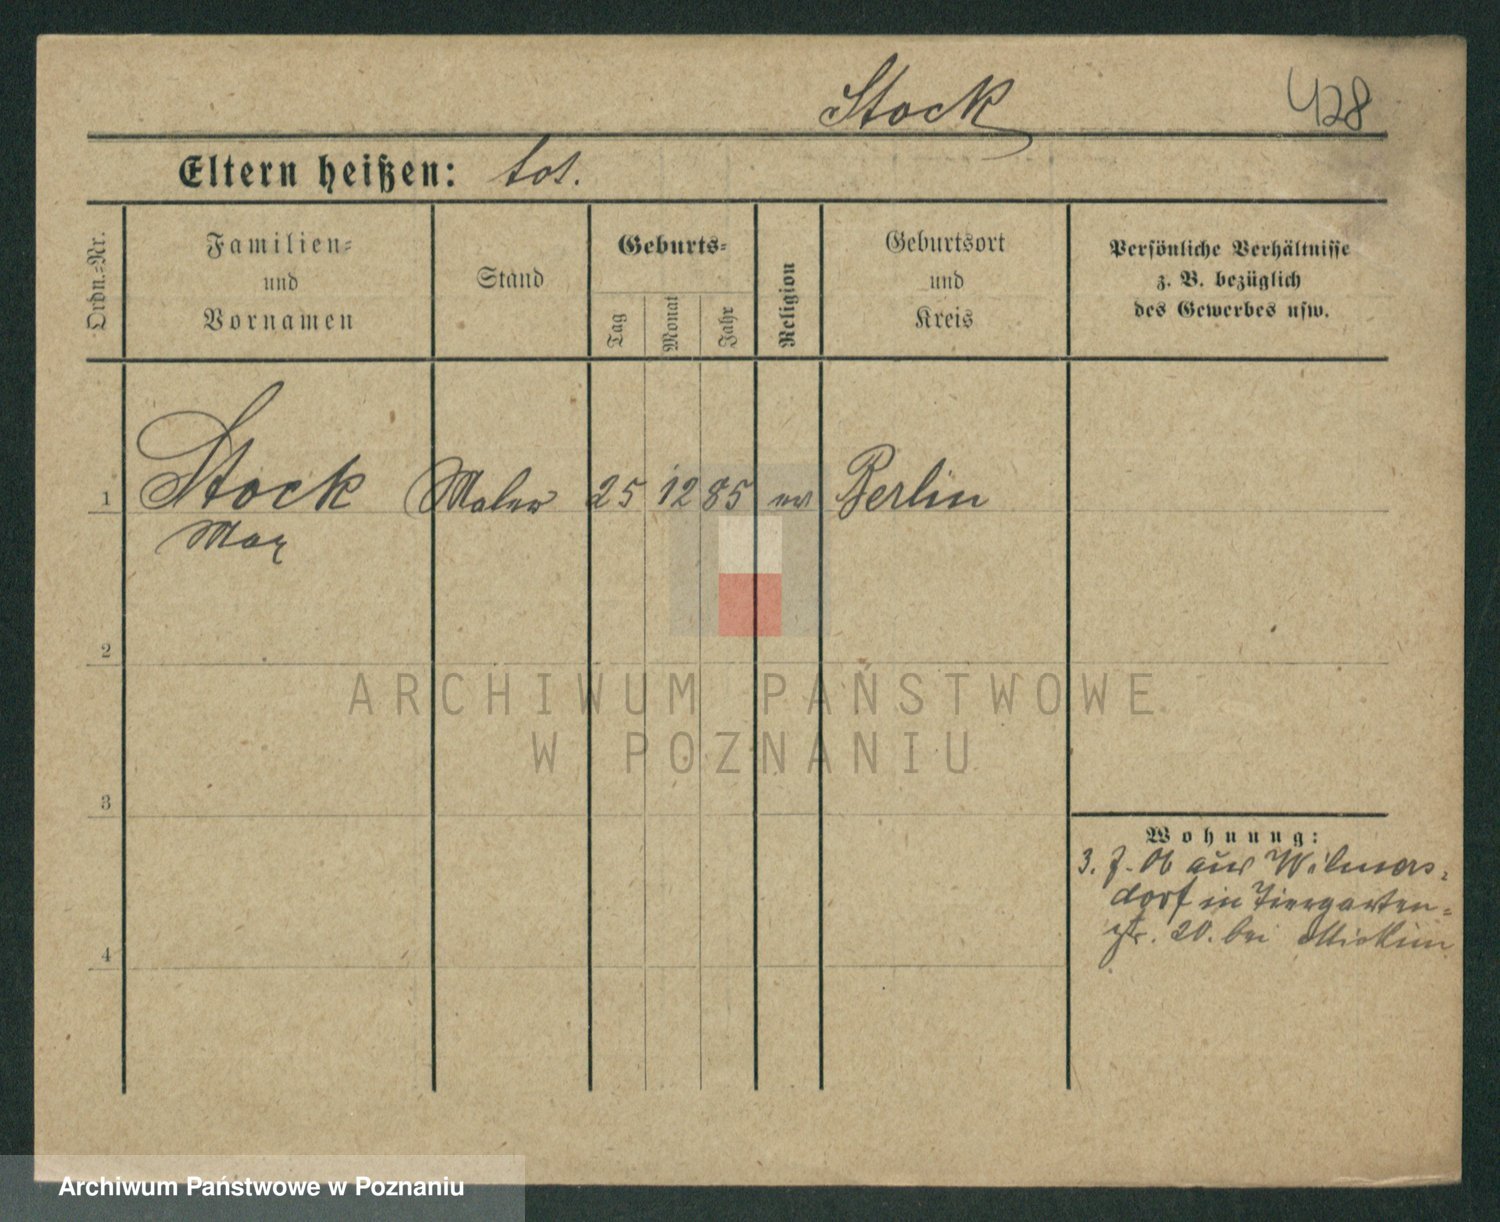 Stock 428
Eltern heißen: tot.
Ordn.=Nr.
Familien=
und
Vornamen
Stand
Geburts=
Tag
Monat
Jahr
Religion
Geburtsort
und
Kreis
Persönliche Verhältnisse
z. B. bezüglich
des Gewerbes usw.
1 Stock Maler 25 12 85 ev Berlin
Max
2
3
4
Wohnung:
3. 7. 06 aus Wilmers-
dorf in Tiergarten-
str. 20. bei
ARCHIWUM PAŃSTWOWE
W POZNANIU
Archiwum Państwowe w Poznaniu